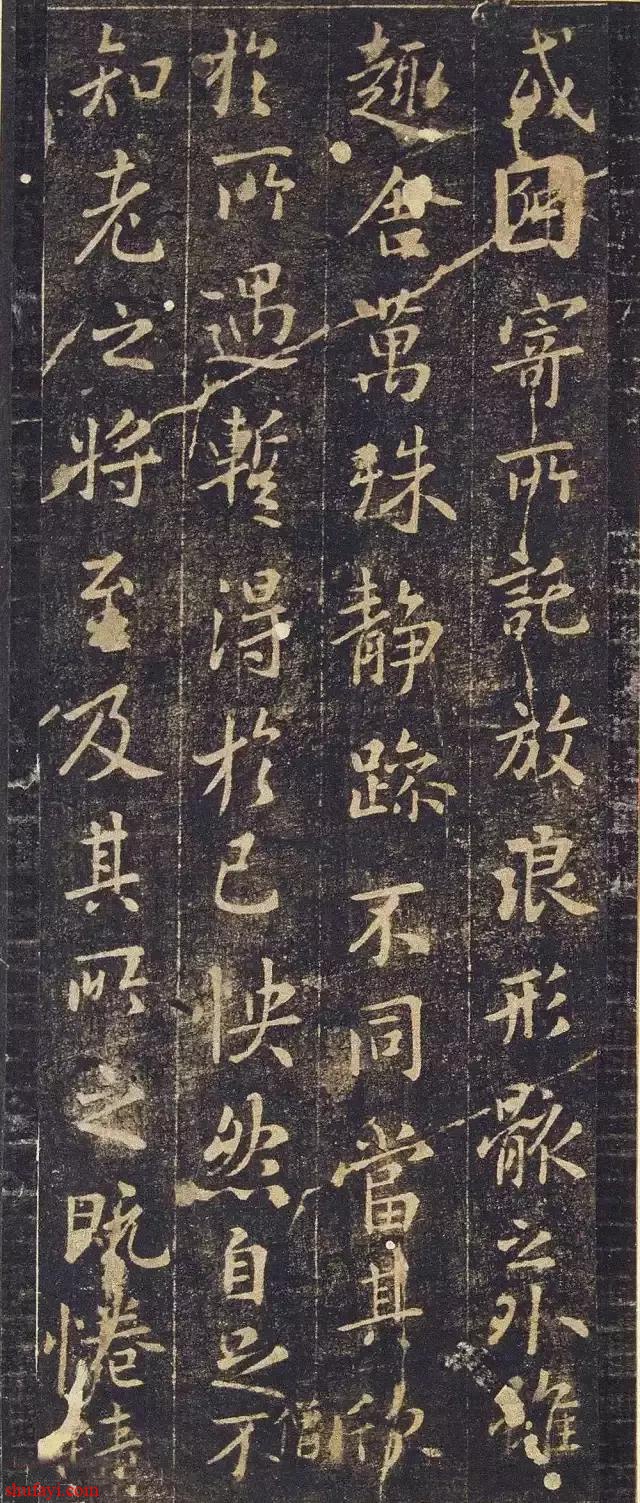 或因寄所託放浪形骸之外雖
趣舍萬殊静躁不同當其欣
僧
於所遇暫得於己怏然自足不
知老之將至及其所之既惓情
shufayi.com